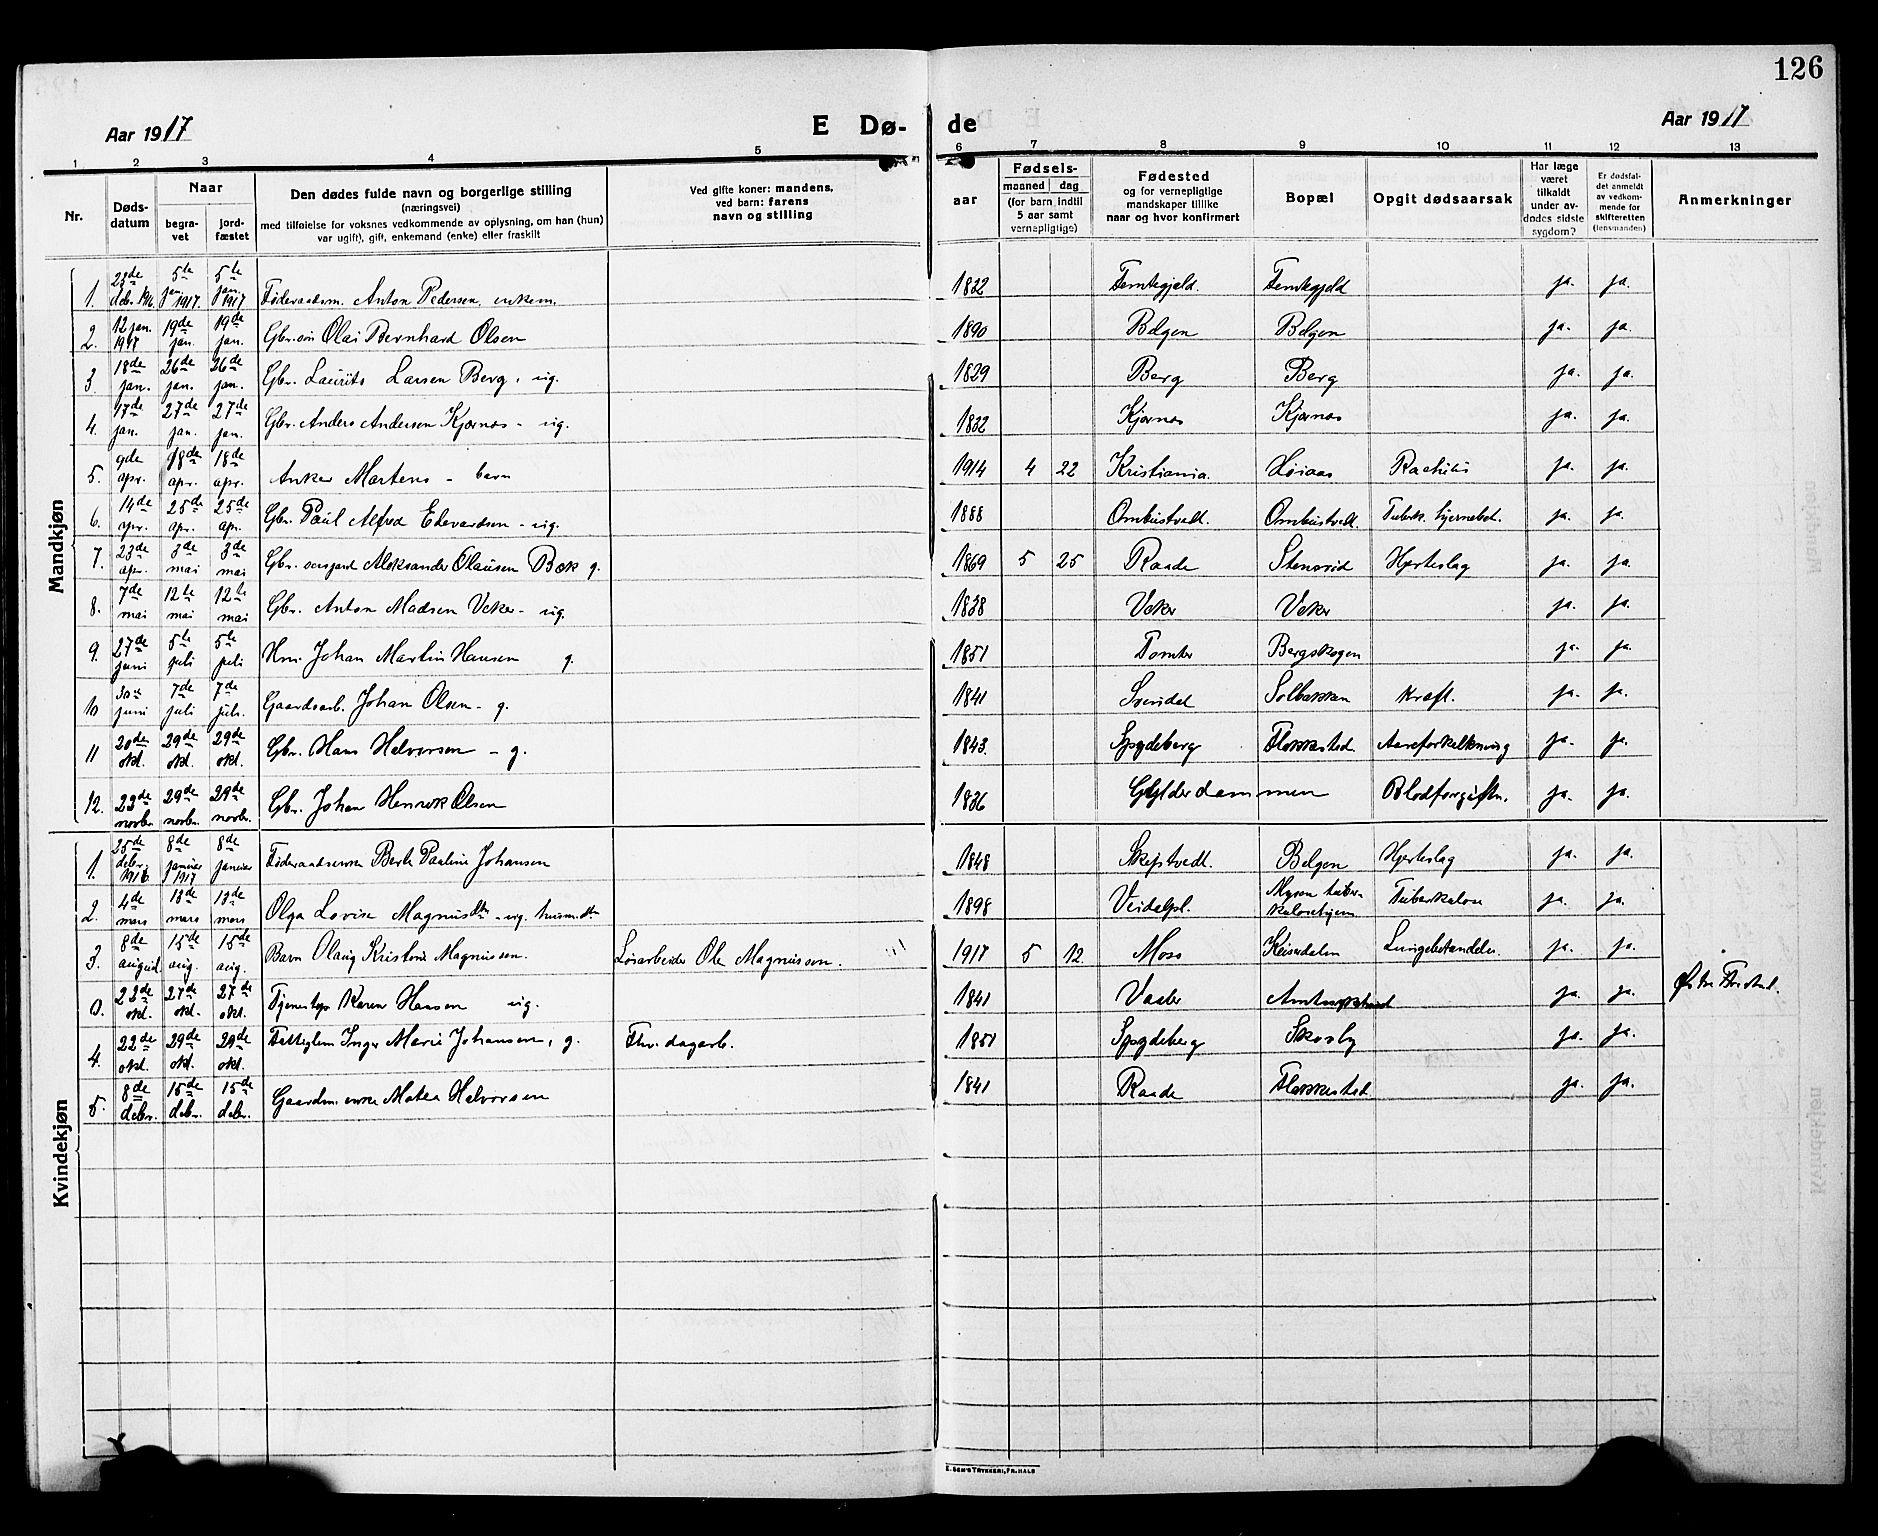 126
Aar 1917
E Dø-
de
Aar 1917
1 2 3 4 5 6 7 8 9 10 11 12 13
Nr.
Døds-
datum
Naar
begra-
vet
jord-
fæstet
Den dødes fulde navn og borgerlige stilling
(næringsvei)
med tilføielse for voksnes vedkommende av oplysning, om han (hun)
var ugift), gift, enkemand (enke) eller fraskilt
Ved gifte koner: mandens,
ved barn: farens
navn og stilling
aar
Fødsels-
maaned dag
(for barn indtil
5 aar samt
vernepligtige)
Fødested
og for vernepligtige
mandskaper tillike
naar og hvor konfirmert
Bopæl
Opgit dødsaarsak
Har læge
været
tilkaldt
under av-
dødes sidste
sygdom?
Er dødsfal-
det anmeldt
av vedkom-
mende for
skifteretten
(lensmanden)
Anmerkninger
Mandkjøn
1. 23de debr. 1916. 5te jan. 1917. 5te jan. 1917 Føderaadsm. Anton Pedersen, enkem. 1832 Femtegjeld Femtegjeld ja. ja.
2. 12 jan. 1917 19de jan. 19de jan. Gbr.søn Olai Bernhard Olsen 1890 Bølgen Bølgen ja. ja.
3. 18de jan. 26de jan. 26de jan. Gbr. Laurits Larsen Berg, ug. 1829 Berg Berg ja. ja.
4. 17de jan. 27de jan. 27de jan. Gbr. Anders Andersen Kjærnes - ug. 1832 Kjærnes Kjærnes ja. ja.
5. 9de apr. 18de apr. 18de apr. Anker Martens - barn 1914 4 22 Kristiania. Høiaas Rachitis ja. ja.
6. 14de apr. 25de apr. 25de apr. Gbr. Paul Alfred Edevardsen - ug. 1888 Ombustvedt. Ombustvedt. Tuberk. hjernebet. ja. ja.
7. 23de apr. 3de mai 3de mai Gbr. Aleksander Olausen Bøk g. 1869 5 25 Raade Stensrid Hjerteslag ja. ja.
8. 7de mai 12te mai 12te mai Gbr. Anton Madsen Veker - ug. 1838 Veker Veker ja. ja.
9. 27de juni 5te juli 5te juli Hm. Johan Martin Hansen g. 1851 Tomter Bergskogen ja. ja.
10 30te juni 7de juli 7de juli. Gaardsarb. Johan Olsen - g. 1841 Svindal Solbakken kræft. ja. ja.
11 20de okt. 29de okt. 29de okt. Gbr. Hans Helvorsen - g. 1843. Spydeberg Flekkested. Aareforkalkning ja. ja.
12. 23de novbr. 29de novbr. 29de novbr. Gbr. Johan Henrik Olsen 1836 Gylderdammen Blodforgiftn. ja. ja.
Kvindekjøn
1. 25de debr. 1916 8de januar 1917 8de januar Føderaadsenke Berte Pauline Johansen 1848 Skiptvedt. Bølgen Hjerteslag ja. ja.
2. 4de mars 13de mars 13de mars Olga Lovise Magnusdtr - ug. husm.dtr 1898 Veidalpl. Mysen tuber-
kulosehjem Tuberkulose ja. ja.
3. 8de august. 15de aug. 15de aug. Barn Olaug Kristine Magnussen. Løsarbeider Ole Magnussen. 1917 5 12 Moss Keiserdalen Lungebetændelse. ja. ja.
0. 22de okt. 27de okt. 27de okt. Tjenestep. Karen Hansen ug. 1841 Vaaler ja. ja.
4. 22de okt. 29de okt. 29de okt. Fattiglem Inger Marie Johansen, g. Fhv. dagarb. 1851 Spydeberg Skovby ja. ja.
5. 8de debr. 15de debr. 15de debr. Gaardm. enke Matea Halvorsen 1841 Raade Flekkested. ja. ja.
E. SEM'S TRYKKERI, FR. HALD